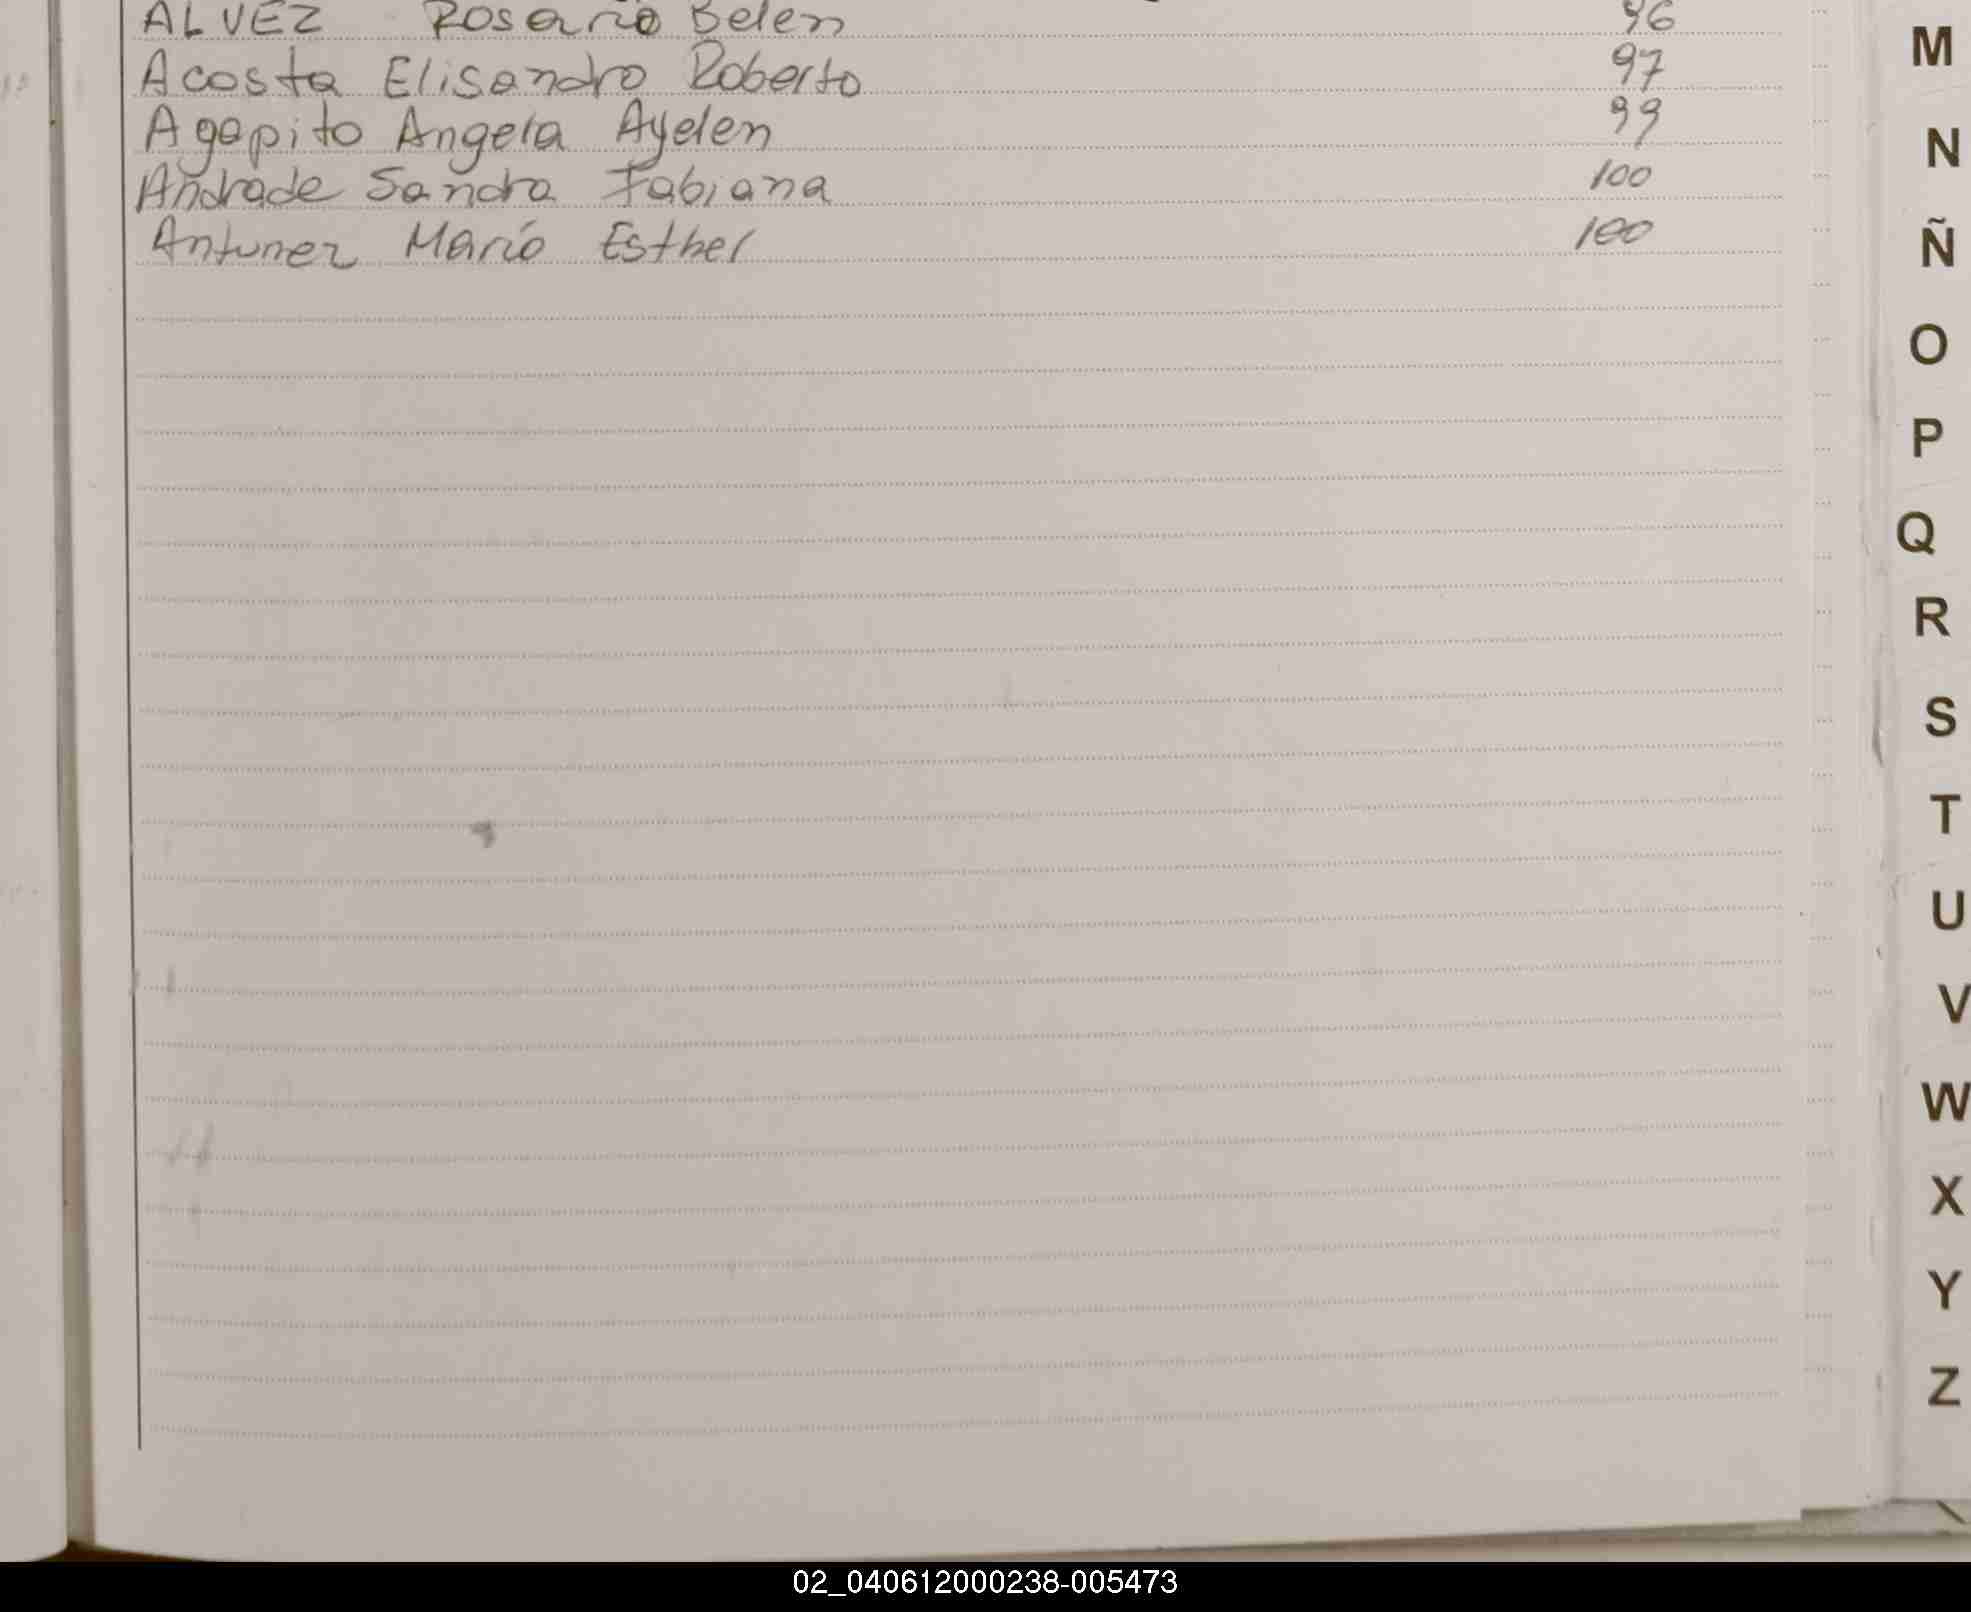 ALVEZ Rosario Belen 96
Acosta Elisandro Roberto 97
Agapito Angela Ayelen 99
Andrade Sandra Fabiana 100
Antunez María Esther 100
M
N
Ñ
O
P
Q
R
S
T
U
V
W
X
Y
Z
02_040612000238-005473